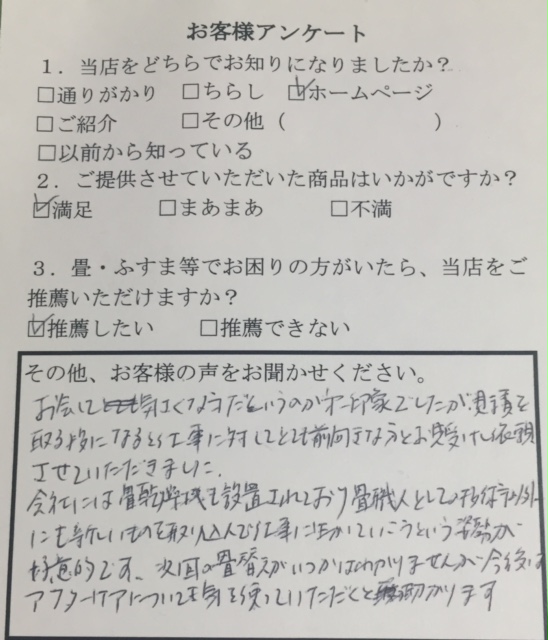 お客様アンケート
1．当店をどちらでお知りになりましたか？
□通りがかり □ちらし ☑ホームページ
□ご紹介 □その他（ ）
□以前から知っている
2．ご提供させていただいた商品はいかがですか？
☑満足 □まあまあ □不満
3．畳・ふすま等でお困りの方がいたら、当店をご
推薦いただけますか？
☑推薦したい □推薦できない
その他、お客様の声をお聞かせください。
お会いして 気さくな方だというのが第一印象でしたが見積を
取る段になると仕事に対してとても前向きな方とお見受けし依頼
させていただきました。
会社には畳乾燥機も設置されており畳職人としての 以外
にも新しいものを取り込んで仕事に生かしていこうという姿勢が
好意的です。次回の畳替えがいつかはわかりませんが今後は
アフターケアについても気を使っていただくと助かります